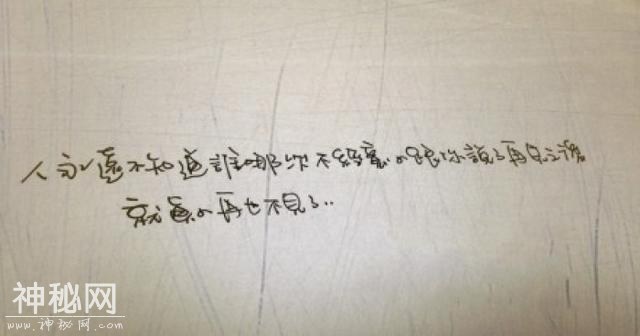 人永遠不知道誰哪次不經意的跟你說了再見之後
就真的再也不見了..
神秘网
www.神秘网.com